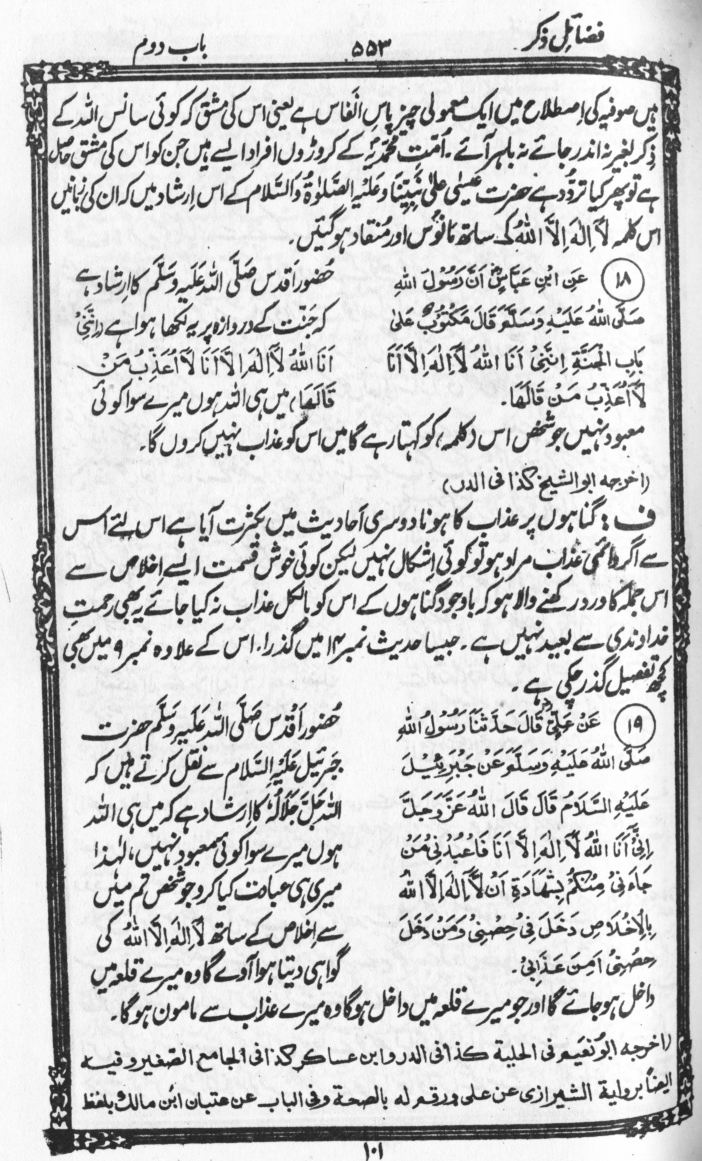 فضائل ذکر
۵۵۳
باب دوم
ہیں صوفیہ کی اصطلاح میں ایک معمولی چیز پاس انفاس ہے یعنی اس کی مشق کہ کوئی سانس اللہ کے
ذکر بغیر نہ اندر جائے نہ باہر آئے۔ اُمّت محمّدیہ کے کروڑوں افراد ایسے ہیں جن کو اس کی مشق حاصل
ہے تو پھر کیا تردُّد ہے حضرت عیسٰی علٰی نَبِیِّنَا وَعَلَیْہِ الصَّلوٰۃُ وَالسَّلام کے اس ارشاد میں کہ ان کی زبانیں
اس کلمہ لَآ اِلٰہَ اِلَّا اللّٰہُ کی ساتھ مانُوس اور مُنقاد ہوگئیں۔
(۱۸) عَنِ ابْنِ عَبَّاسٍؓ اَنَّ رَسُوْلَ اللّٰہِ
صَلَّی اللّٰہُ عَلَیْہِ وَسَلَّمَ قَالَ مَکْتُوْبٌ عَلٰی
بَابِ الْجَنَّۃِ اِنَّنِیْ اَنَا اللّٰہُ لَآ اِلٰہَ اِلَّا اَنَا
لَا اُعَذِّبُ مَنْ قَالَھَا۔
حُضورِ اَقدس صَلَّی اللّٰہُ عَلَیہِ وَسَلَّم کا ارشاد ہے
کہ جَنّت کے دروازہ پر یہ لکھا ہوا ہے (اِنَّنِیْ
اَنَا اللّٰہُ لَآ اِلٰہَ اِلَّا اَنَا لَا اُعَذِّبُ مَنْ
قَالَھَا) میں ہی اللہ ہوں میرے سوا کوئی
معبود نہیں جو شخص اس (کلمہ) کو کہتا رہے گا میں اس کو عذاب نہیں کروں گا۔
(اخرجہ ابو الشیخ کذا فی الدر)
ف: گناہوں پر عذاب کا ہونا دوسری اَحادیث میں بکثرت آیا ہے اس لئے اس
سے اگر دائمی عذاب مراد ہو تو کوئی اِشکال نہیں لیکن کوئی خوش قسمت ایسے اِخلاص سے
اس جملہ کا ورد رکھنے والا ہو کہ باوجود گناہوں کے اس کو بالکل عذاب نہ کیا جائے یہ بھی رحمتِ
خداوندی سے بعید نہیں ہے۔ جیسا حدیث نمبر ۱۴ میں گذرا۔ اس کے علاوہ نمبر ۹ میں بھی
کچھ تفصیل گذر چکی ہے۔
(۱۹) عَنْ عَلِیٍّؓ قَالَ حَدَّثَنَا رَسُوْلُ اللّٰہِ
صَلَّی اللّٰہُ عَلَیْہِ وَسَلَّمَ عَنْ جِبْرَئِیْلَ
عَلَیْہِ السَّلَامُ قَالَ قَالَ اللّٰہُ عَزَّ وَجَلَّ
اِنِّیْ اَنَا اللّٰہُ لَآ اِلٰہَ اِلَّا اَنَا فَاعْبُدْنِیْ مَنْ
جَاءَنِیْ مِنْکُمْ بِشَھَادَۃِ اَنْ لَّآ اِلٰہَ اِلَّا اللّٰہُ
بِالْاِخْلَاصِ دَخَلَ فِیْ حِصْنِیْ وَمَنْ دَخَلَ
حِصْنِیْ اَمِنَ عَذَابِیْ۔
حُضورِ اَقدس صَلَّی اللّٰہُ عَلَیہِ وَسَلَّم حضرت
جبرئیل عَلَیْہِ السَّلام سے نقل کرتے ہیں کہ
اللّٰہ جَلَّ جَلَالُہٗ کا ارشاد ہے کہ میں ہی اللہ
ہوں میرے سوا کوئی معبود نہیں، لہٰذا
میری ہی عبادت کیا کرو جو شخص تم میں
سے اِخلاص کے ساتھ لَآ اِلٰہَ اِلَّا اللّٰہُ کی
گواہی دیتا ہوا آوے گا وہ میرے قلعہ میں
داخل ہو جائے گا اور جو میرے قلعہ میں داخل ہوگا وہ میرے عذاب سے مامون ہوگا۔
(اخرجہ ابو نعیم فی الحلیۃ کذا فی الدر وابن عساکر کذا فی الجامع الصغیر وفیہ
ایضاً بروایۃ الشیرازی عن علی ورقم لہ بالصحۃ وفی الباب عن عتبان ابن مالک بلفظ
۱۰۱